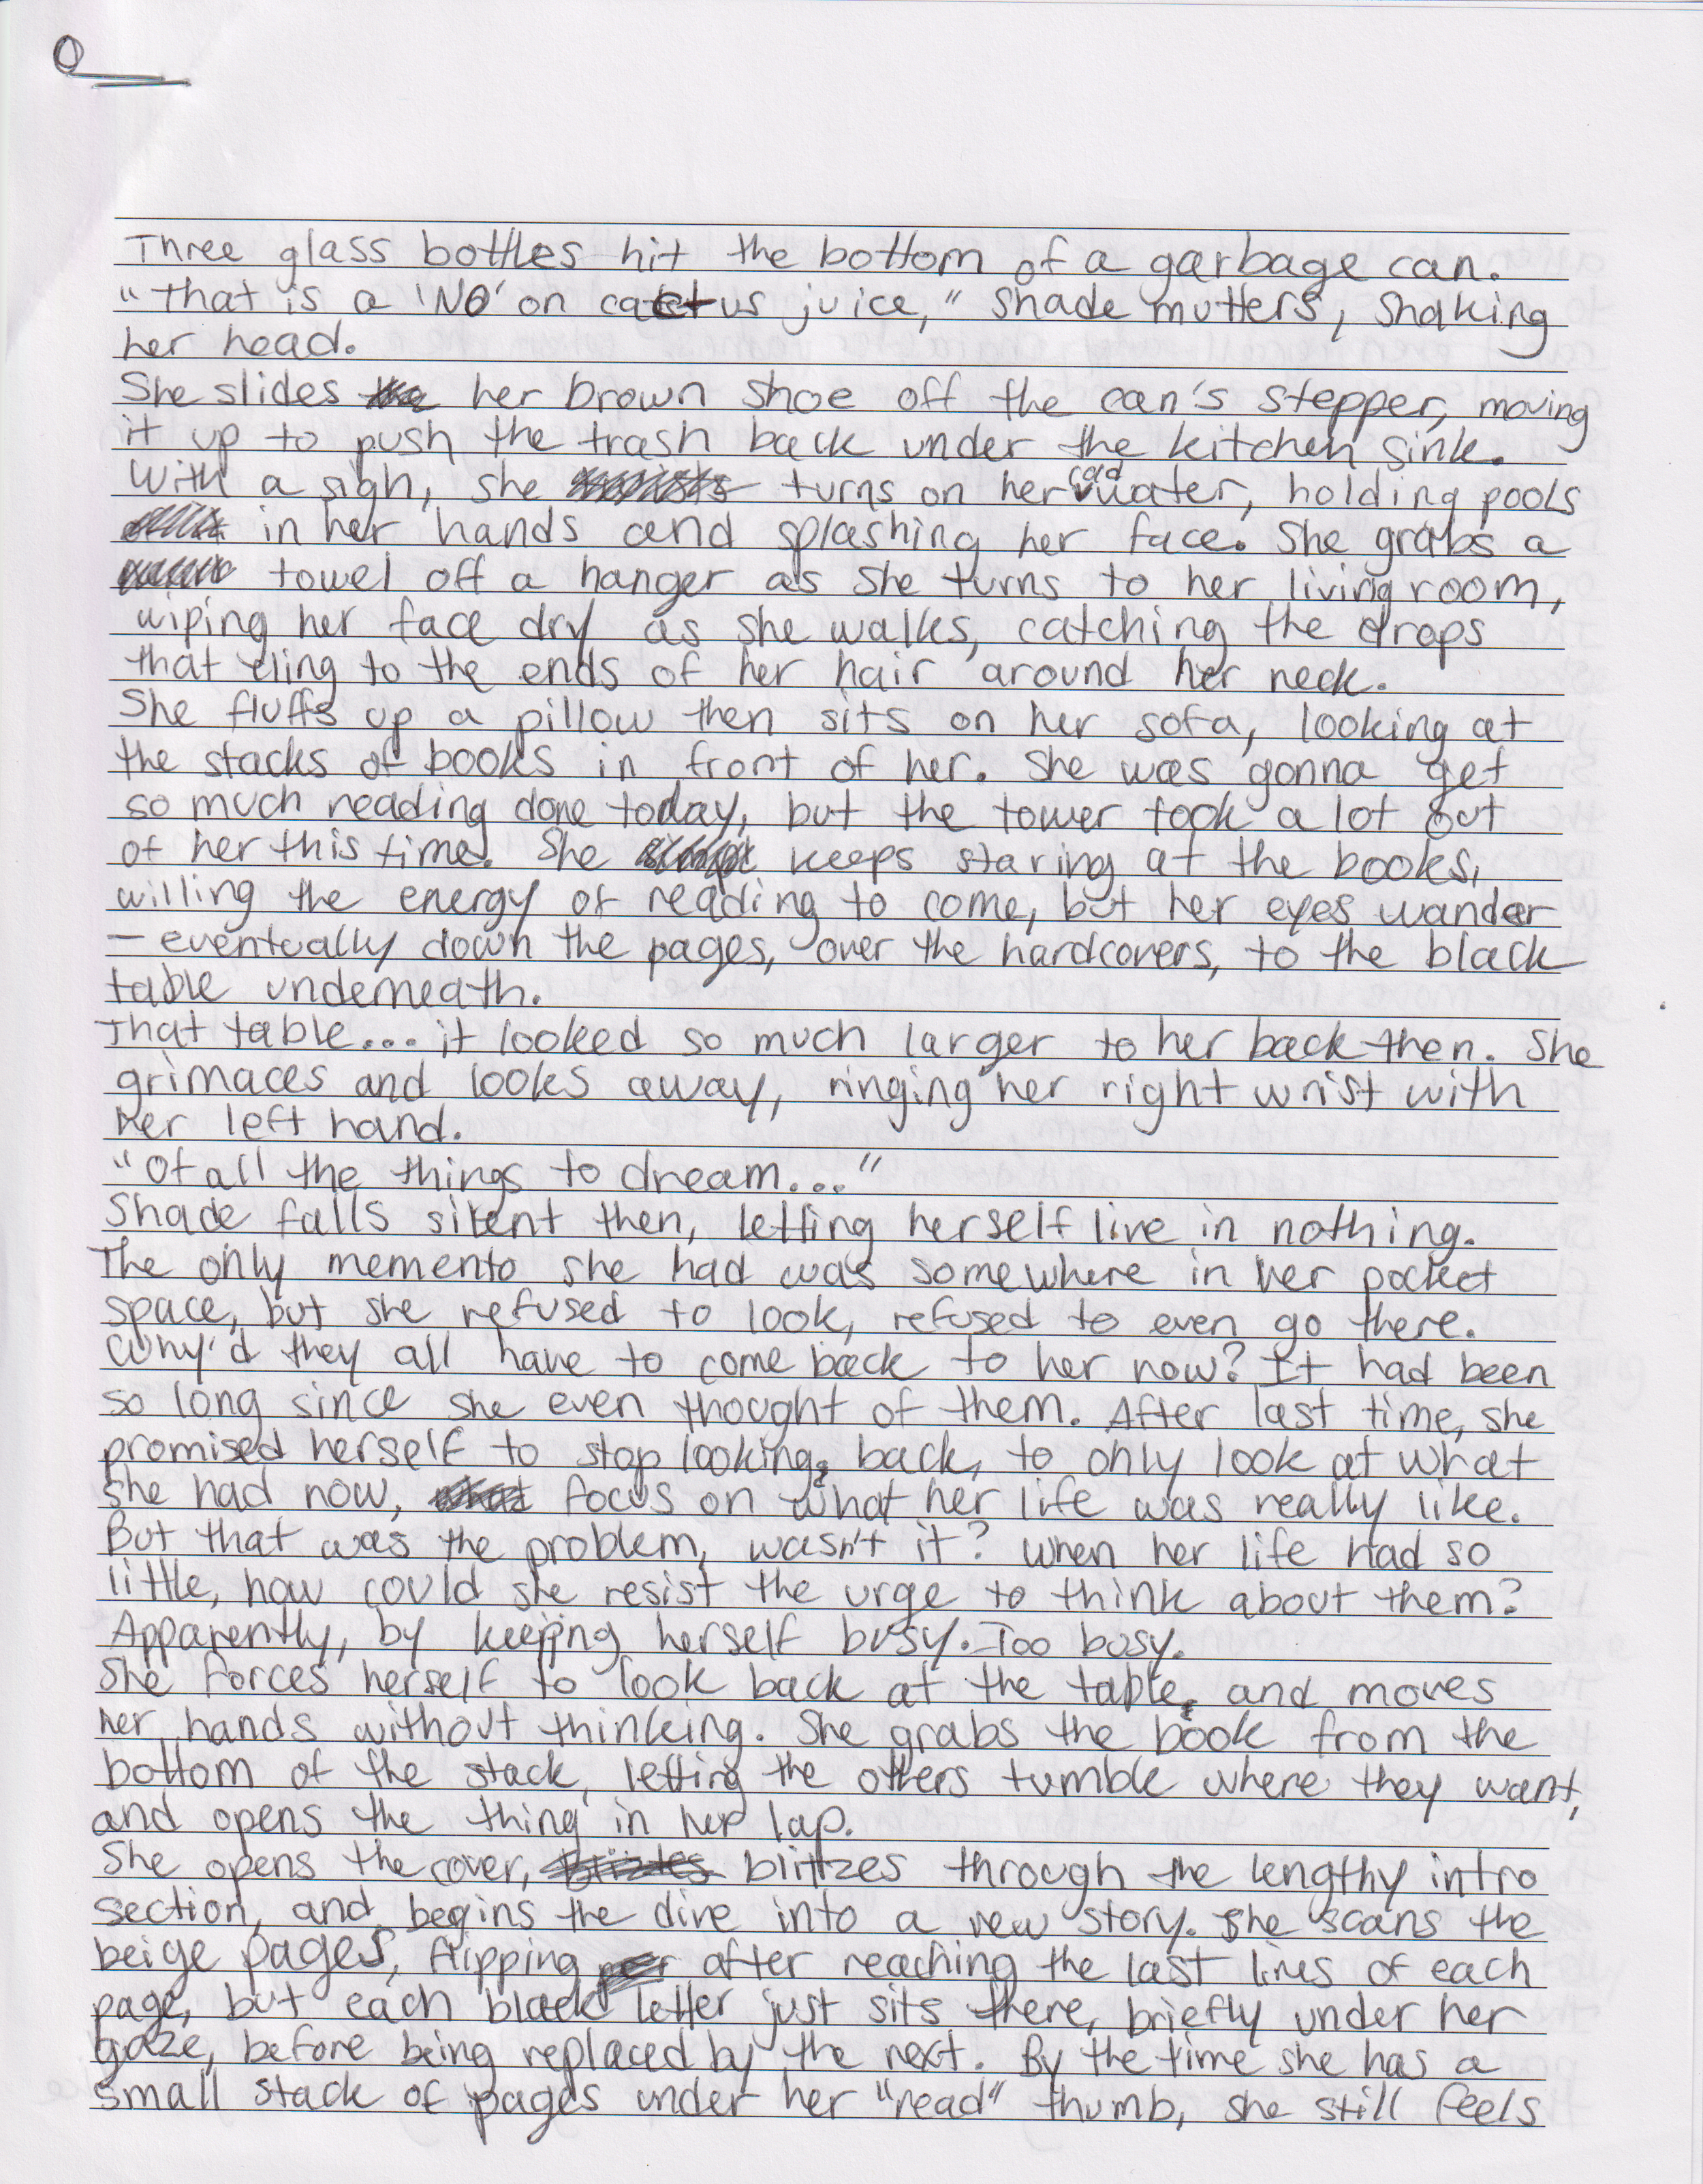 0
Three glass bottles hit the bottom of a garbage can.
"That is a 'NO' on cactus juice," Shade mutters, shaking
her head.
She slides her brown shoe off the can's stepper, moving
it up to push the trash back under the kitchen sink.
With a sigh, she turns on her water, holding pools
in her hands and splashing her face. She grabs a
towel off a hanger as she turns to her living room,
wiping her face dry as she walks, catching the drops
that cling to the ends of her hair around her neck.
She fluffs up a pillow then sits on her sofa, looking at
the stacks of books in front of her. She was gonna get
so much reading done today, but the tower took a lot out
of her this time. She keeps staring at the books,
willing the energy of reading to come, but her eyes wander
– eventually down the pages, over the hardcovers, to the black
table underneath.
That table... it looked so much larger to her back then. She
grimaces and looks away, ringing her right wrist with
her left hand.
"Of all the things to dream..."
Shade falls silent then, letting herself live in nothing.
The only memento she had was somewhere in her pocket
space, but she refused to look, refused to even go there.
Why'd they all have to come back to her now? It had been
so long since she even thought of them. After last time, she
promised herself to stop looking back, to only look at what
she had now, focus on what her life was really like.
But that was the problem, wasn't it? When her life had so
little, how could she resist the urge to think about them?
Apparently, by keeping herself busy. Too busy.
She forces herself to look back at the table, and moves
her hands without thinking. She grabs the book from the
bottom of the stack, letting the others tumble where they want,
and opens the thing in her lap.
She opens the cover, blitzes through the lengthy intro
section, and begins the dive into a new story. She scans the
beige pages, flipping after reaching the last lines of each
page, but each black letter just sits there, briefly under her
gaze, before being replaced by the next. By the time she has a
small stack of pages under her "read" thumb, she still feels